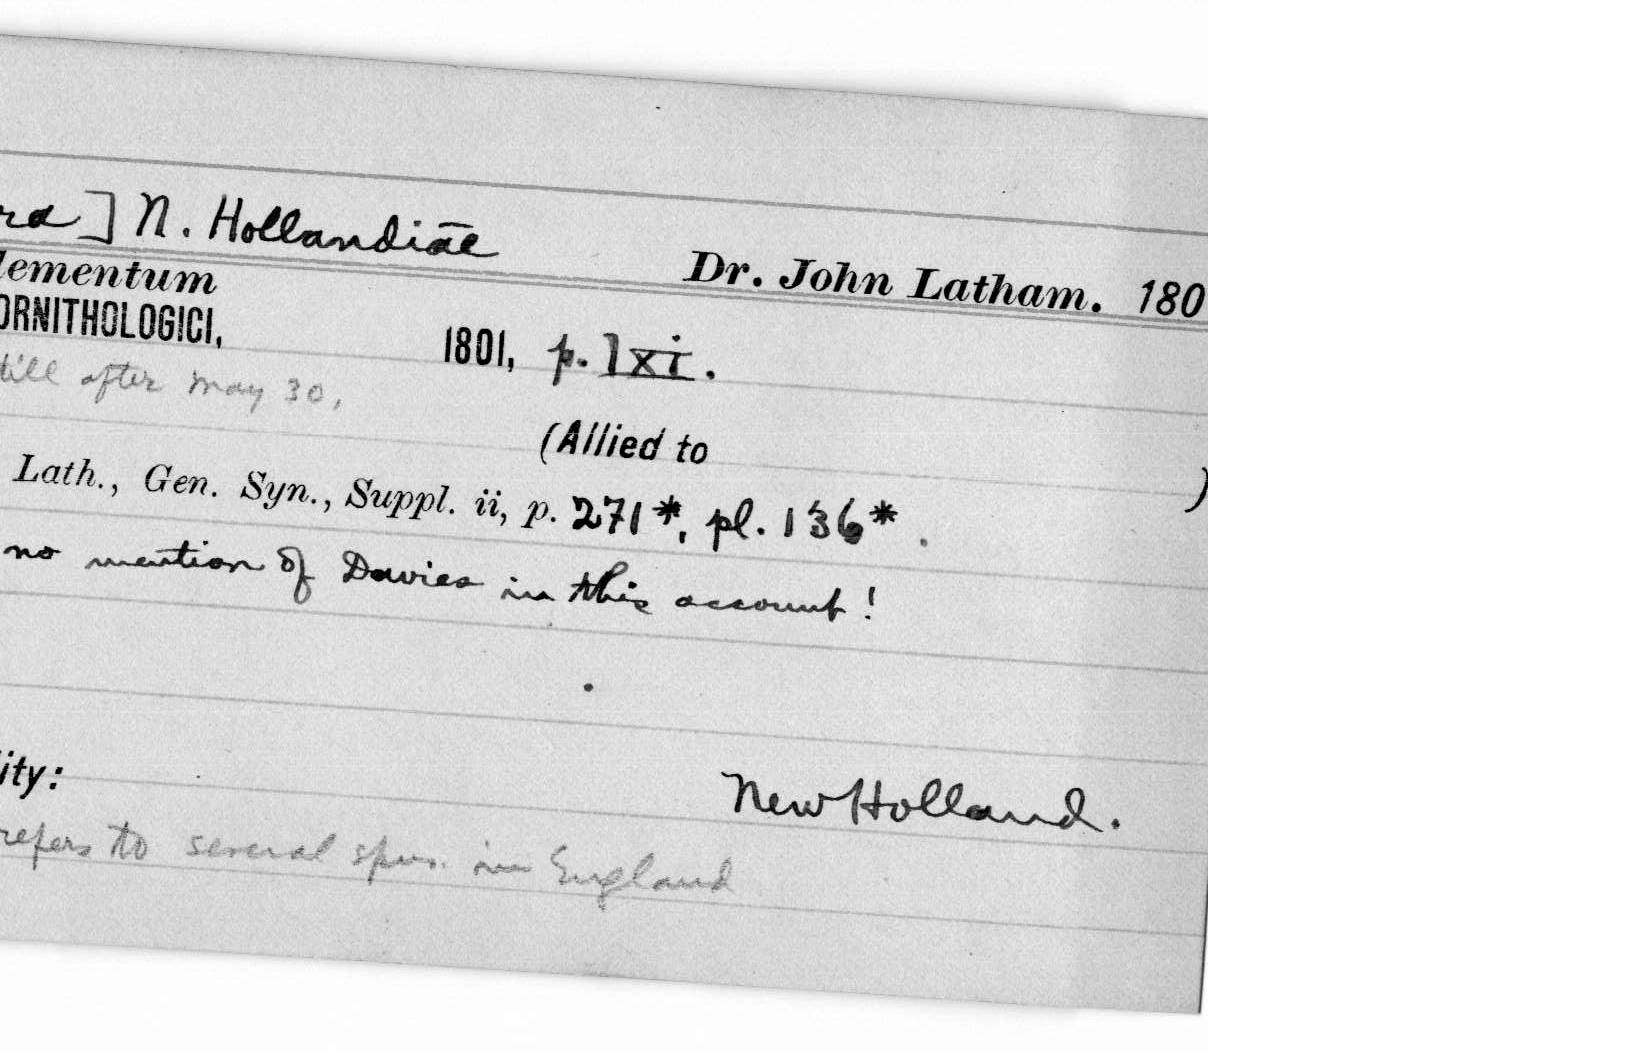 ra] N. Hollandiae
Dr. John Latham. 180
lementum
ORNITHOLOGICI,
1801, p. lxi.
till after May 30,
(Allied to )
Lath., Gen. Syn., Suppl. ii, p. 271*, pl. 136*.
no mention of Davies in this account!
ity:
New Holland.
refers to several spms. in England